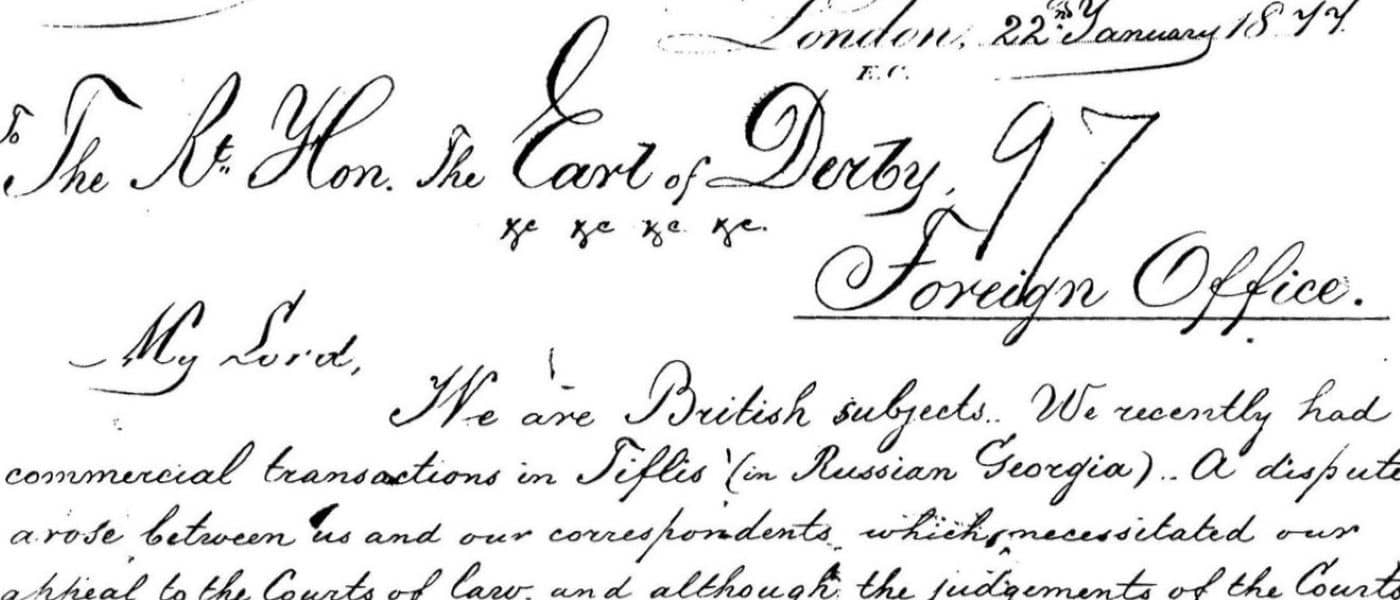 London, 22nd January 1877.
E.C.
To
The Rt. Hon. The Earl of Derby,
97
&c &c &c &c.
Foreign Office.
My Lord,
We are British subjects.. We recently had
commercial transactions in Tiflis (in Russian Georgia).. A dispute
arose between us and our correspondents, which, necessitated our
appeal to the Courts of law, and although the judgements of the Courts